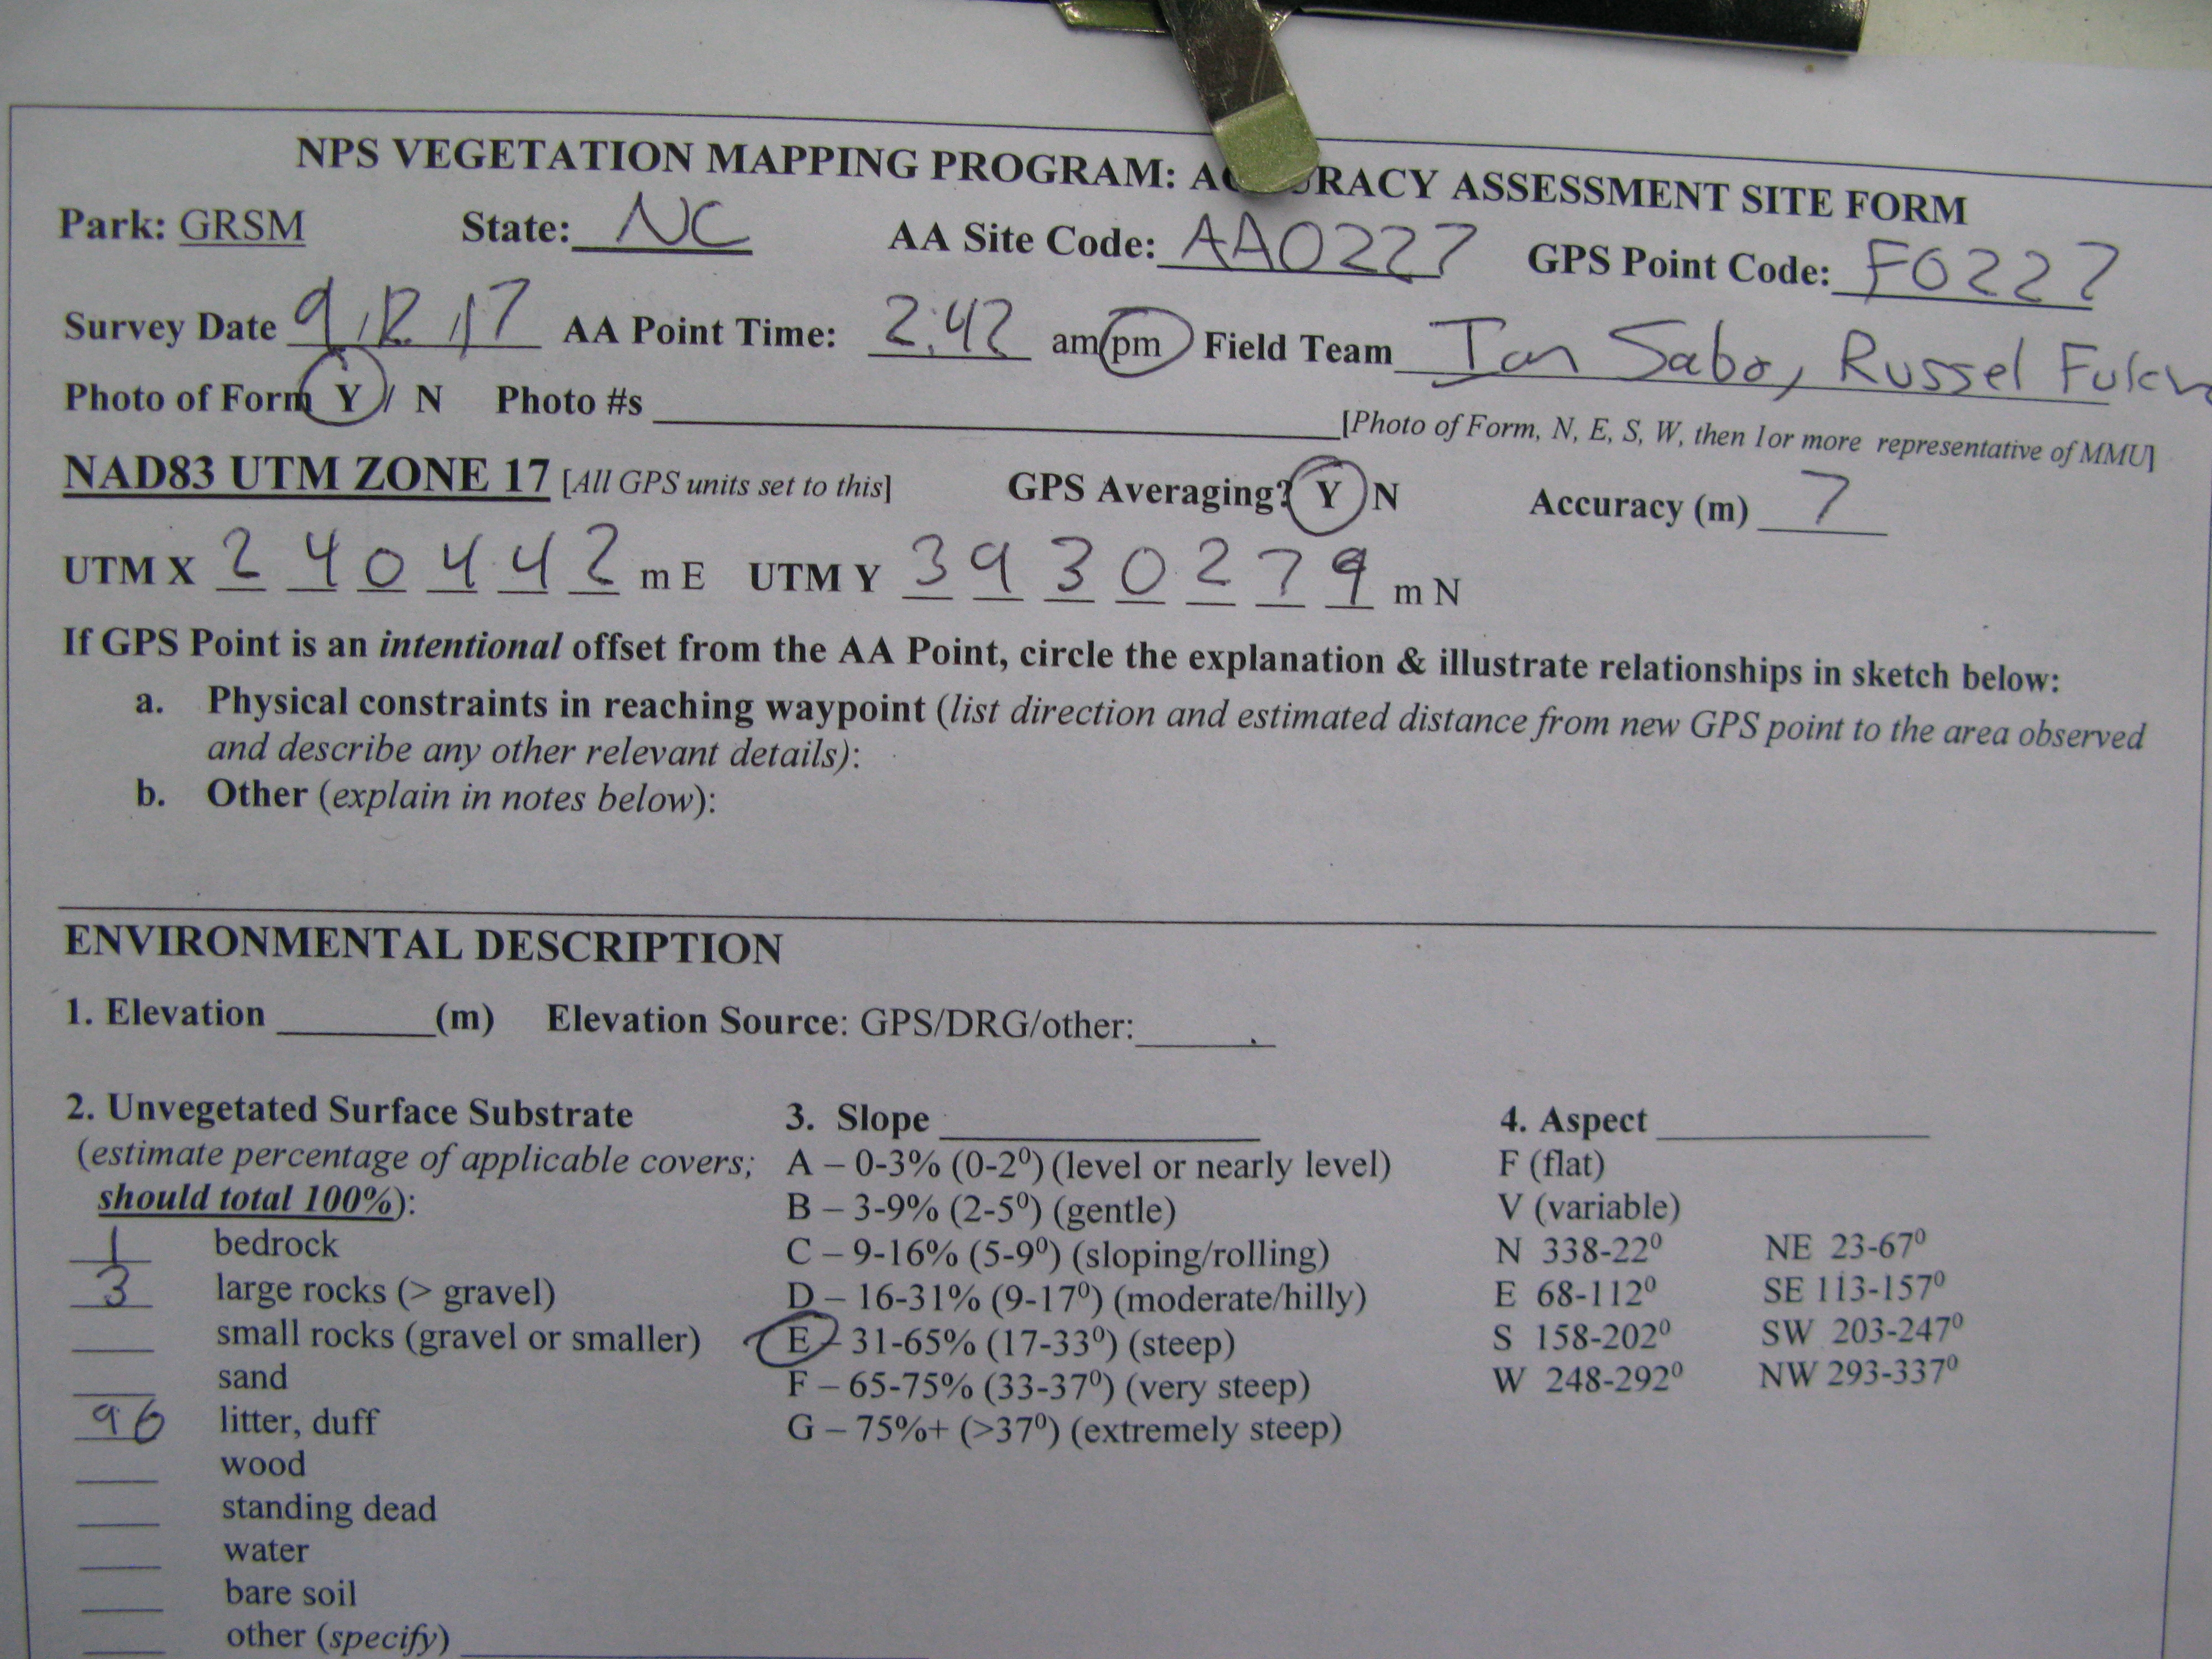 NPS VEGETATION MAPPING PROGRAM: ACCURACY ASSESSMENT SITE FORM
Park: GRSM State: NC AA Site Code: AA0227 GPS Point Code: F0227
Survey Date 9/12/17 AA Point Time: 2:42 am/pm Field Team Ian Sabo, Russel
Photo of Form Y / N Photo #s [Photo of Form, N, E, S, W, then 1or more representative of MMU]
NAD83 UTM ZONE 17 [All GPS units set to this] GPS Averaging? Y N Accuracy (m) 7
UTM X 2 4 0 4 4 2 m E UTM Y 3 9 3 0 2 7 9 m N
If GPS Point is an intentional offset from the AA Point, circle the explanation & illustrate relationships in sketch below:
a. Physical constraints in reaching waypoint (list direction and estimated distance from new GPS point to the area observed
and describe any other relevant details):
b. Other (explain in notes below):
ENVIRONMENTAL DESCRIPTION
1. Elevation (m) Elevation Source: GPS/DRG/other:
2. Unvegetated Surface Substrate
(estimate percentage of applicable covers;
should total 100%):
1 bedrock
3 large rocks (> gravel)
small rocks (gravel or smaller)
sand
96 litter, duff
wood
standing dead
water
bare soil
other (specify)
3. Slope
A – 0-3% (0-2⁰) (level or nearly level)
B – 3-9% (2-5⁰) (gentle)
C – 9-16% (5-9⁰) (sloping/rolling)
D – 16-31% (9-17⁰) (moderate/hilly)
E – 31-65% (17-33⁰) (steep)
F – 65-75% (33-37⁰) (very steep)
G – 75%+ (>37⁰) (extremely steep)
4. Aspect
F (flat)
V (variable)
N 338-22⁰ NE 23-67⁰
E 68-112⁰ SE 113-157⁰
S 158-202⁰ SW 203-247⁰
W 248-292⁰ NW 293-337⁰